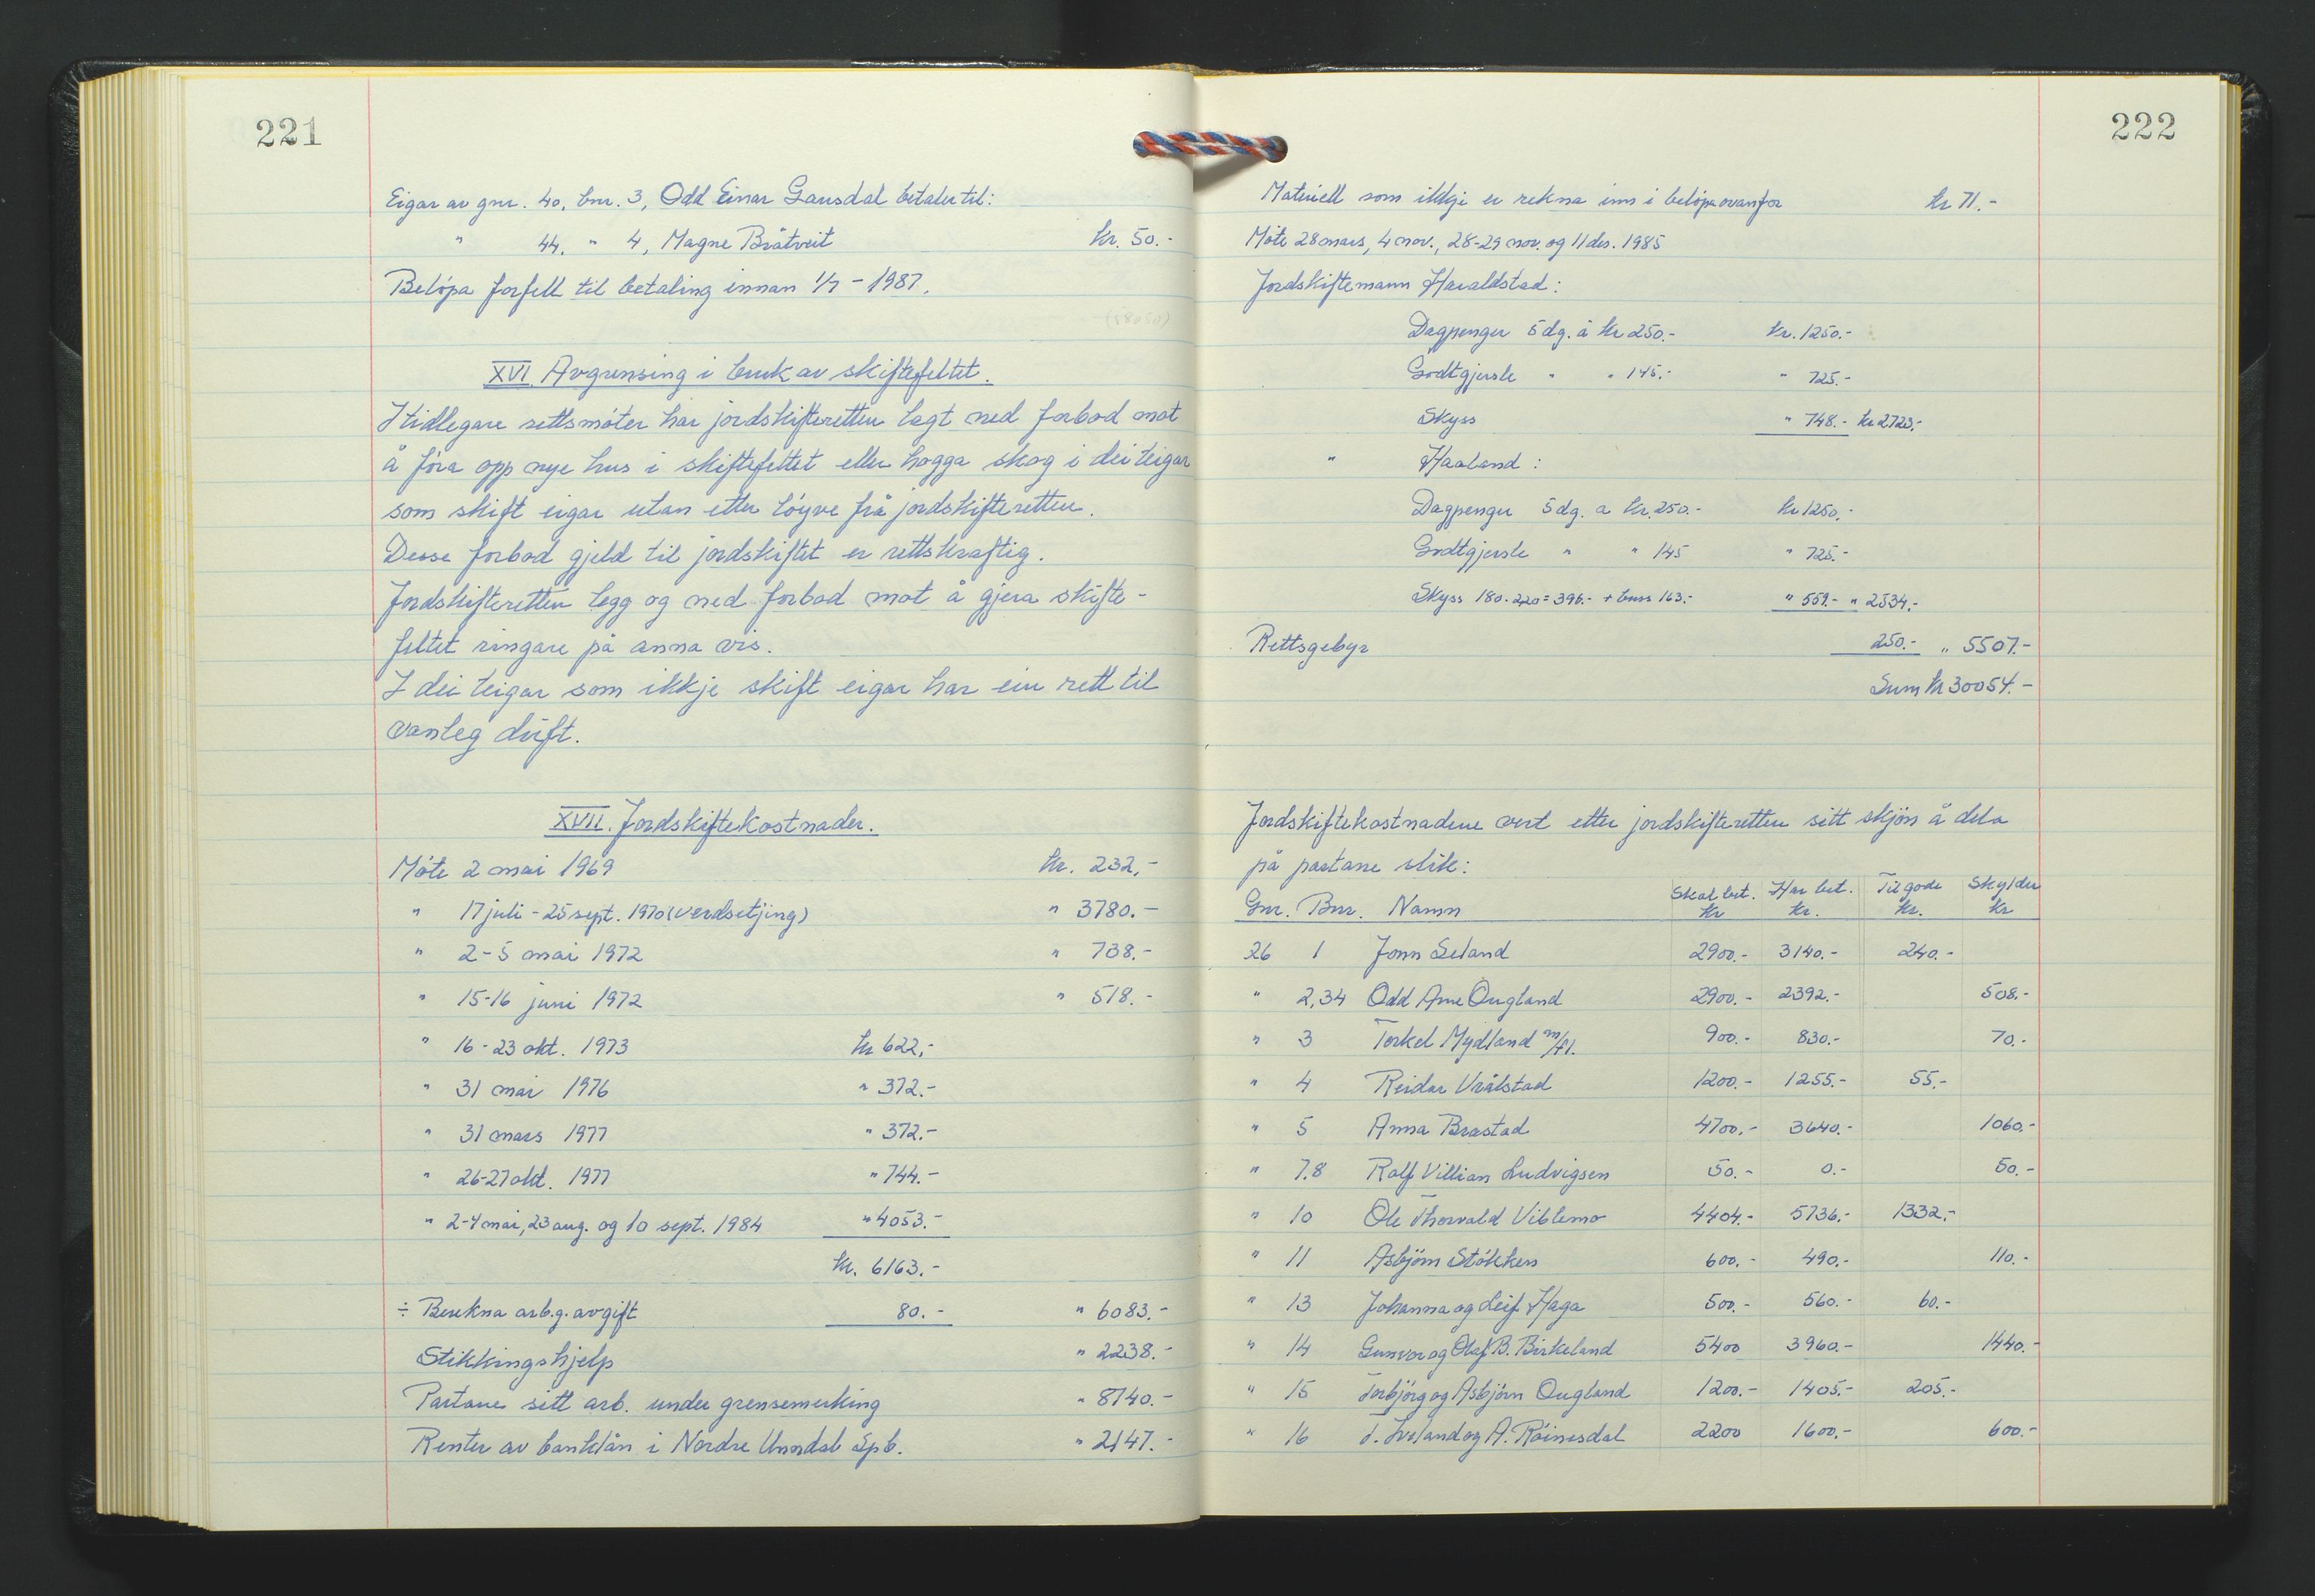 221
Eigar av gnr. 40, bnr. 3, Odd Einar Gausdal betaler til:
" 44. " 4, Magne Bråtveit kr. 50.-
Belöpa forfell til betaling innan 1/7 - 1987.
XVI. Avgrensing i bruk av skiftefeltet.
I tidlegare rettsmöter har jordskifteretten lagt ned forbod mot
å föra opp nye hus i skiftefeltet eller hogga skog i dei teigar
som skift eigar utan etter löyve frå jordskifteretten.
Desse forbod gjeld til jordskiftet er rettskraftig.
Jordskifteretten legg og ned forbod mot å gjera skifte-
feltet ringare på anna vis.
I dei teigar som ikkje skift eigar har ein rett til
vanleg drift.
XVII. Jordskiftekostnader.
Möte 2 mai 1969 kr. 232,-
" 17 juli - 25 sept. 1970 (verdsetjing) " 3780.-
" 2-5 mai 1972 " 738.-
" 15-16 juni 1972 " 518.-
" 16-23 okt. 1973 kr 622,-
" 31 mai 1976 " 372.-
" 31 mars 1977 " 372.-
" 26-27 okt. 1977 " 744.-
" 2-4 mai, 23 aug. og 10 sept. 1984 " 4053.-
kr. 6163.-
÷ Berekna arb.g. avgift 80.- " 6083.-
Stikkingshjelp " 2238.-
Partane sitt arb. under grensemerking " 8740.-
Renter av banklån i Nordre Unndal Spb. " 2147.-
222
Materiell som ikkje er rekna inn i belöpa ovanfor kr 71.-
Möte 28 mars, 4 nov., 28-29 nov. og 11 des. 1985
Jordskiftemann Haraldstad:
Dagpenger 5 dg. á kr 250.- kr. 1250.-
Godtgjersle " " 145.- " 725.-
Skyss " 748.- kr 2723.-
" Haaland:
Dagpenger 5 dg. a kr. 250.- kr 1250.-
Godtgjersle " " 145 " 725.-
Skyss 180. 2,20 = 396.- + buss 163.- " 559.- " 2534.-
Rettsgebyr 250.- " 5507.-
Sum kr 30054.-
Jordskiftekostnadene vert etter jordskifteretten sitt skjön å dela
på partane slik:
Gnr. Bnr. Namn Skal bet. kr Har bet. kr. Til gode kr. Skylder kr
26 1 Jonn Seland 2900.- 3140.- 240.-
" 2,34 Odd Arne Ougland 2900.- 2392.- 508.-
" 3 Torkel Mydland m/fl. 900.- 830.- 70.-
" 4 Reidar Vrålstad 1200.- 1255.- 55.-
" 5 Anna Brastad 4700.- 3640.- 1060.-
" 7.8 Rolf Villian Ludvigsen 50.- 0.- 50.-
" 10 Ole Thorvald Viblemo 4404.- 5736.- 1332.-
" 11 Asbjörn Stökken 600.- 490.- 110.-
" 13 Johanna og Leif Haga 500.- 560.- 60.-
" 14 Gunvor og Olaf B. Birkeland 5400 3960.- 1440.-
" 15 Torbjörg og Asbjörn Ougland 1200.- 1405.- 205.-
" 16 T. Iveland og A. Röinesdal 2200 1600.- 600.-